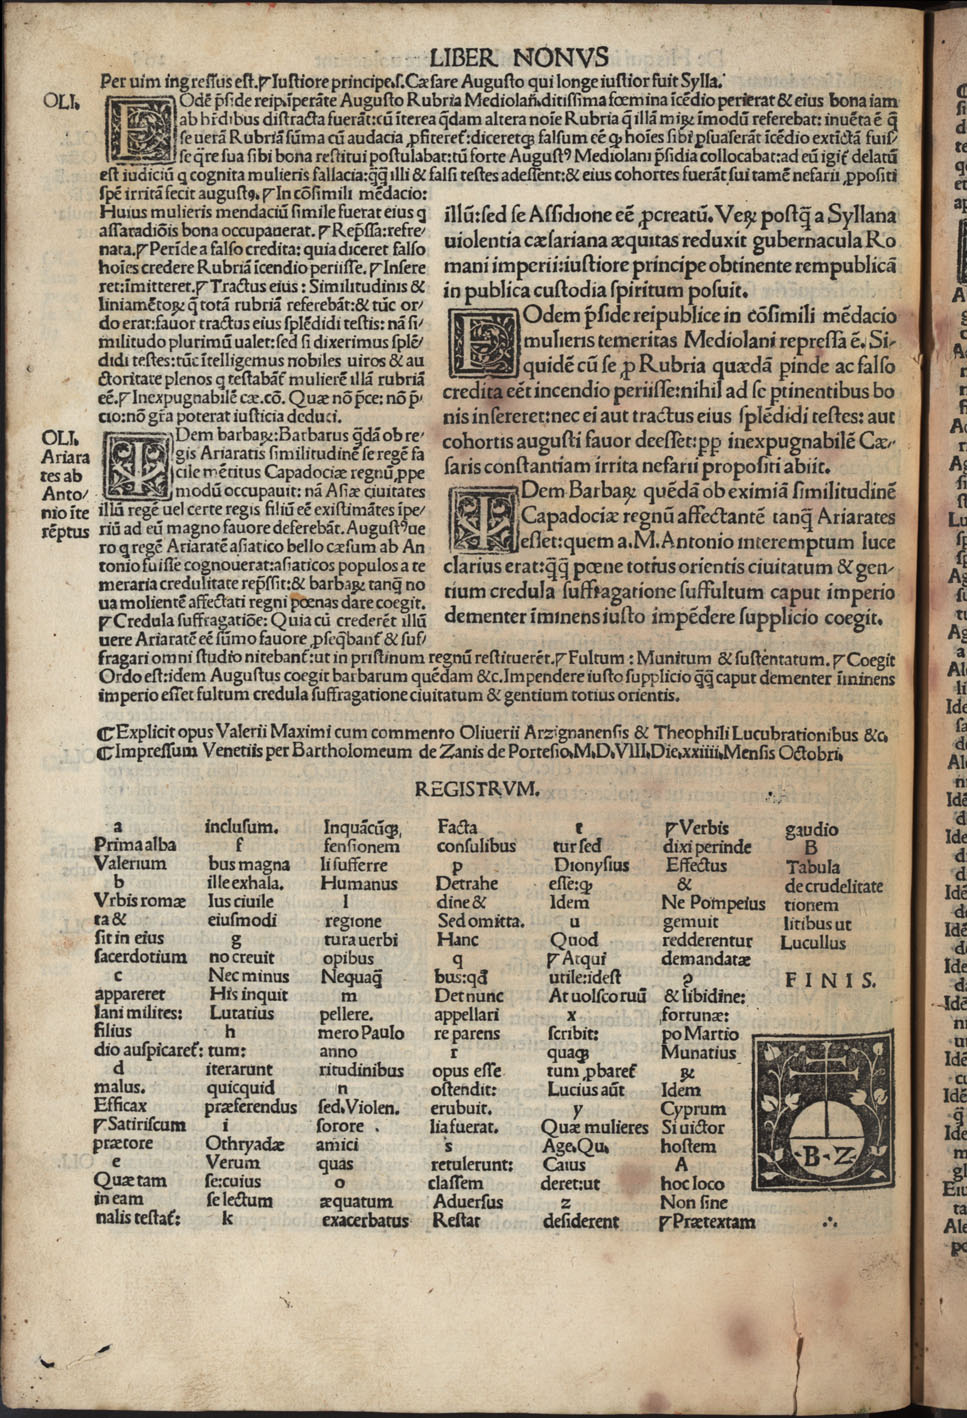 LIBER NONVS
Per uim ingressus est.⁋Iustiore principe.s.Cæsare Augusto qui longe iustior fuit Sylla.
OLI.
EOdē p̄side reip.īperāte Augusto Rubria Mediolan̄.ditissima fœmina īcēdio perierat & eius bona iam
ab hr̄dibus distracta fuerāt:cū īterea q̄dam altera noīe Rubria
se uerā Rubriā sūma cū audacia ꝓfiteret᷑:diceretqꝫ falsum eē qꝫ hoīes sibi ꝑsuaserāt īcēdio extīctā fuis/
se q̄ re sua sibi bona restitui postulabat:tū forte Augustꝰ Mediolani p̄sidia collocabat:ad eū igit᷑ delatū
est iudiciū q cognita mulieris fallacia:q̄q̄ illi & falsi testes adessent:& eius cohortes fuerāt sui tamē nefarii ꝓpositi
spē irritā fecit augustꝰ.⁋In cōsimili mēdacio:
Huius mulieris mendaciū simile fuerat eius q
assaradiōis bona occupauerat.⁋Rep̄ssa:refre/
nata.⁋Perīde a falso credita: quia diceret falso
hoīes credere Rubriā īcendio periisse.⁋Insere
ret:īmitteret.⁋Tractus eius: Similitudinis &
liniamētoꝝ q̄ totā rubriā referebāt:& tūc or/
do erat:fauor tractus eius splēdidi testis: nā si/
militudo plurimū ualet:sed si dixerimus splē/
didi testes:tūc ītelligemus nobiles uiros & au
ctoritate plenos q testabāt᷑ mulierē illā rubriā
eē.⁋Inexpugnabilē cæ.cō. Quæ nō p̄ce: nō p̄/
cio:nō gr̄a poterat iusticia deduci.
OLI.
Ariara
tes ab
Anto/
nio īte
rēptus
IDem barbaꝝ:Barbarus q̄dā ob re/
gis Ariaratis similitudinē se regē fa
cile mētitus Capadociæ regnū ꝓpe
modū occupauit: nā Asiæ ciuitates
illū regē uel certe regis filiū eē existimātes īpe/
riū ad eū magno fauore deferebāt. Augustꝰ ue
ro q regē Ariaratē asiatico bello cæsum ab An
tonio fuisse cognouerat:asiaticos populos a te
meraria credulitate rep̄ssit:& barbaꝝ tanq̄ no
ua molientē affectati regni pœnas dare coegit.
⁋Credula suffragatiōe: Quia cū crederēt illū
uere Ariaratē eē sūmo fauore ꝓseq̄bant᷑ & suf/
fragari omni studio nitebant᷑:ut in pristinum regnū restituerēt.⁋Fultum: Munitum & sustentatum.⁋Coegit
Ordo est:idem Augustus coegit barbarum quēdam &c.Impendere iusto supplicio q̄q̄ caput dementer īminens
imperio esset fultum credula suffragatione ciuitatum & gentium totius orientis.
illū:sed se Assidione eē ꝓcreatū. Veꝝ postq̄ a Syllana
uiolentia cæsariana æquitas reduxit gubernacula Ro
mani imperii:iustiore principe obtinente rempublicā
in publica custodia spiritum posuit.
EOdem p̄side reipublice in cōsimili mēdacio
mulieris temeritas Mediolani repressa ē. Si-
quidē cū se ꝓ Rubria quædā pinde ac falso
credita eēt incendio periisse:nihil ad se ptinentibus bo
nis insereret:nec ei aut tractus eius splēdidi testes: aut
cohortis augusti fauor deesset:pp inexpugnabilē Cæ-
saris constantiam irrita nefarii propositi abiit.
IDem Barbaꝝ quēdā ob eximiā similitudinē
Capadociæ regnū affectantē tanq̄ Ariarates
esset:quem a.M.Antonio interemptum luce
clarius erat:q̄q̄ pœne totius orientis ciuitatum & gen-
tium credula suffragatione suffultum caput imperio
dementer īminens iusto impēdere supplicio coegit.
⁌Explicit opus Valerii Maximi cum commento Oliuerii Arzignanensis & Theophili Lucubrationibus &c.
⁌Impressum Venetiis per Bartholomeum de Zanis de Portesio.M.D.VIII.Die.xxiiii.Mensis Octobri.
REGISTRVM.
a
Prima alba
Valerium
b
Vrbis romæ
ta &
sit in eius
sacerdotium
c
appareret
lani milites:
filius
dio auspicaret᷑:
d
malus.
Efficax
⁋Satiriscum
prætore
e
Quæ tam
in eam
nalis testat᷑:
inclusum.
f
bus magna
ille exhala.
Ius ciuile
eiusmodi
g
no creuit
Nec minus
His inquit
Lutatius
h
tum:
iterarunt
quicquid
præferendus
i
Othryadæ
Verum
se:cuius
se lectum
k
Inquācūqꝫ
fensionem
li sufferre
Humanus
l
regione
tura uerbi
opibus
Nequaq̄
m
pellere.
mero Paulo
anno
ritudinibus
n
sed.Violen.
sorore .
amici
quas
o
æquatum
exacerbatus
Facta
consulibus
p
Detrahe
dine &
Sed omitta.
Hanc
q
bus:qd̄
Det nunc
appellari
re parens
r
opus esse
ostendit:
erubuit.
lia fuerat.
s
retulerunt:
classem
Aduersus
Restat
t
tur sed
Dionysius
esse:qꝫ
Idem
u
Quod
⁋Atqui
utile:idest
At uolscoruū
x
scribit:
quaqꝫ
tum ꝓbaret᷑
Lucius aūt
y
Quæ mulieres
Age.Qu.
Caius
deret:ut
z
desiderent
⁋Verbis
dixi perinde
Effectus
&
Ne Pompeius
gemuit
redderentur
demandatæ
ꝯ
& libidine:
fortunæ:
po Martio
Munatius
ꝝ
Idem
Cyprum
Si uictor
hostem
A
hoc loco
Non sine
⁋Prætextam
gaudio
B
Tabula
de crudelitate
tionem
litibus ut
Lucullus
FINIS.
B·Z